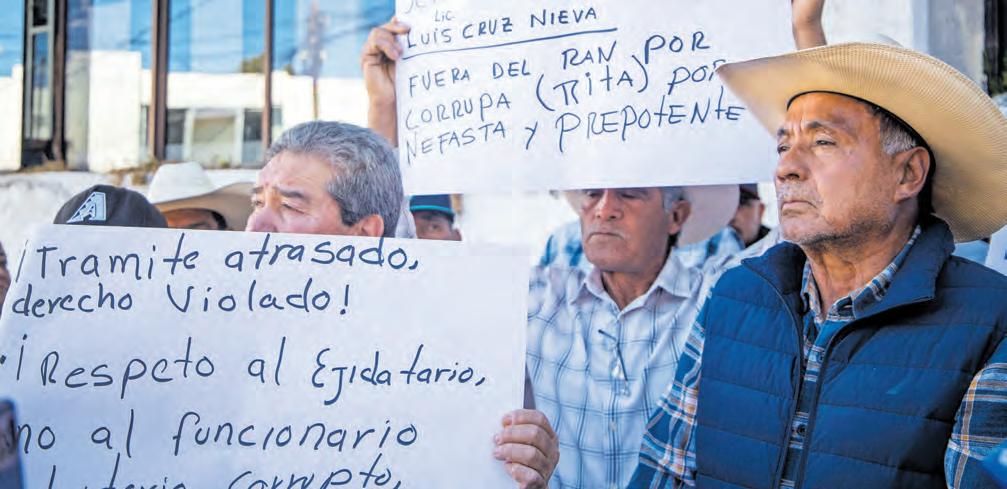 Lic.
LUIS CRUZ NIEVA
FUERA DEL RAN POR
CORRUPA (RITA) POR
NEFASTA Y PREPOTENTE
¡Tramite atrasado,
derecho Violado!
¡Respeto al Ejidatario,
no al funcionario
corrupto,
A